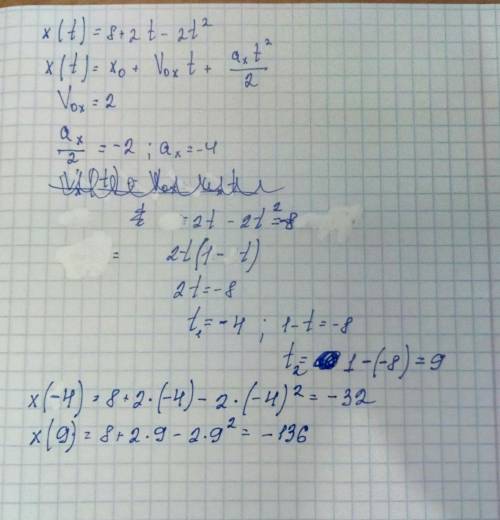 x(t)=8+2t-2t²
x(t)=x₀+V₀ₓt+aₓt²/2
V₀ₓ=2
aₓ/2=-2; aₓ=-4
=2t-2t²=-8
= 2t(1-t)
2t=-8
t₁=-4; 1-t=-8
t₂= 1-(-8)=9
x(-4)=8+2·(-4)-2·(-4)²=-32
x(9)=8+2·9-2·9²=-136